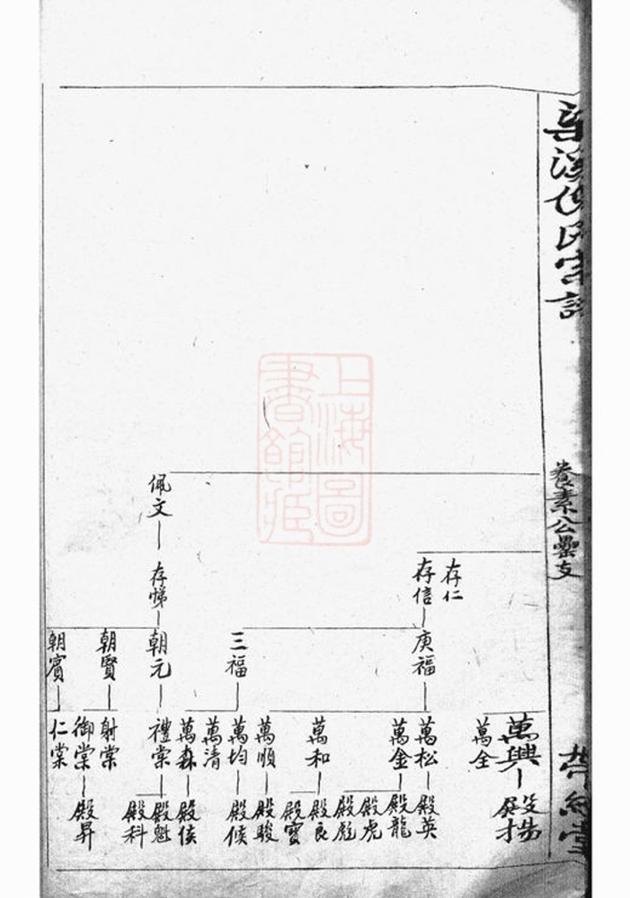 溪
氏宗譜
養素公
支
堂
上海圖
書館藏
存仁
存信
庚福
三福
佩文
存悌
朝元
朝賢
朝賓
萬興
殿揚
萬全
萬松
殿英
萬金
殿龍
殿虎
殿彪
萬和
殿良
殿寶
萬順
殿駿
萬均
殿候
萬清
萬森
殿侯
禮棠
殿魁
殿科
射棠
御棠
殿昇
仁棠